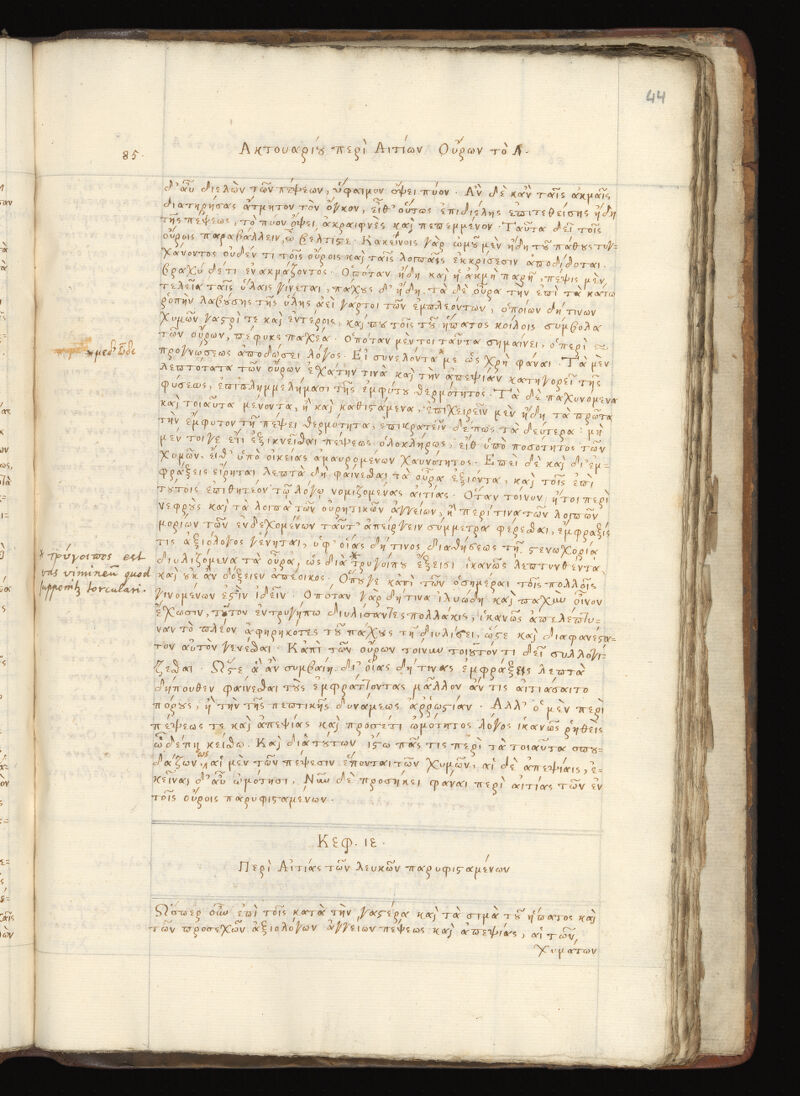 44
85.
Ἀκτουαρίου περὶ Αἰτίων Οὔρων τὸ Α.
δ' αὖ διελὼν τῶν πέψεων, ὕφαιμον ὄψει πύον. Ἂν δὲ κἂν ταῖς ἀκμαῖς
διατηρήσας ἄτμητον τὸν ὄγκον, εἶθ' οὕτως ἐπιδιέλῃς ἐπιτεθείσης ἤδη
τῆς πέψεως, τὸ πύον ὄψει ἀκραιφνὲς καὶ πεπεμμένον. Ταῦτα δεῖ τοῖς
οὔροις παραβάλλειν, ὦ βέλτιστε. Κἀκείνοις γὰρ ὠμοῦ μὲν ἤδη τοῦ πάθους τυγ-
χάνοντος οὐδέν τι τοῖς οὔροις καὶ ταῖς λοιπαῖς ἐκκρίσεσιν ἀποδίδοται.
βραχὺ δέ τι ἐν ἀκμάζοντος. Ὁπόταν ἤδη καὶ ἡ ἀκμὴ παρῇ, πέψις μὲν
τελεία ταῖς ὕλαις γίνεται, πάχυς δ' ἤδη τὰ δὲ οὖρα τὴν ἐπὶ τὰ κάτω
ῥοπὴν λαβούσης τῆς ὕλης ἀεὶ γάρ τοι τῶν ἐμπλεόντων, ὁποίων δή τινων
χυμῶν γαστρί τε καὶ ἐντέροις, καί που τοῖς τοῦ ἥπατος κοίλοις σύμβολα
τῶν οὔρων, πέφυκε παχέα. Ὁπόταν μέντοι ταῦτα σημαίνει, ὁ περὶ
προγνώσεως ἀποδώσει λόγος. Εἰ συνελόντα με ὡς χρὴ φάναι. Τὰ μὲν
λεπτότατα τῶν οὔρων ἐσχάτην τινὰ καὶ τὴν ἀπεψίαν κατηγορεῖ τῆς
φύσεως, ἐπὶ πλημμελήμασι τῆς ἐμφύτου θερμότητος. Τὰ δὲ παχυνόμενα
καὶ τοιαῦτα μένοντα, ἢ καὶ καθιστάμενα, ἐπιχειρεῖν μὲν ἤδη τὰ πρῶτα
τὴν ἔμφυτον τῇ πέψει θερμότητα, ἐπικρατεῖν δέ πως τὰ δεύτερα: μὴ
μέν τοί γε ἔτι ἐξικνεῖσθαι πέψεως ὁλοκλήρως, εἴθ' ὑπὸ ποσότητος τῶν
χυμῶν, εἴθ' ὑπὸ οἰκείας ἀμαυρομένων χαυνότητος. Ἐπεὶ δὲ καὶ δι' ἐμ-
φράξεις εἴρηται λεπτὰ δὴ φαίνεσθαι τὰ οὖρα ἐξιόντα, καὶ τοῖς ἐπὶ
τούτοις ἐπιθητέον τῷ λόγῳ νομιζομένας αἰτίας. Ὅταν τοίνυν, ἤτοι περὶ
νεφροὺς καὶ τὰ λοιπὰ τῶν οὐρητικῶν ἀγγείων, ἢ περί τινα τῶν λοιπῶν
μορίων τῶν ἐνδεχομένων ταῦτ' ἀπείργειν σύμμετρα φέρεσθαι, ἔμφραξίς
τις ἀξιόλογος γένηται, ὑφ' οἵας δή τινος διαθήσεως τῇ στενοχωρίᾳ
διυλιζόμενα τὰ οὖρα, ὡς διὰ *τρυγοίπου ἔξεισι ἱκανῶς λεπτυνθέντα,
καὶ οὐκ ἂν δόξειεν ἀπεοικός. Ὅπου γε κἀπὶ τῶν ὁσημέραι τοῖς πολλοῖς
γινομένων ἔστιν ἰδεῖν. Ὁπόταν γὰρ δή τινα ἰλυώδη καὶ παχὺν οἶνον
ἔχωσιν, τοῦτον ἐν τρυγήπῳ διυλίσαντες πολλάκις, ἱκανῶς ἀπελέπτυ-
ναν τὸ πλέον ἀφῃρηκότες τοῦ πάχους τῇ διυλίσει, ὥστε καὶ διαφανέστα-
τον αὐτὸν γενέσθαι. Κἀπὶ τῶν οὔρων τοίνυν τοιοῦτόν τι δεῖ συλλογί-
ζεσθαι. Ὥστε ἃ ἂν συμβαίη δι' οἵας δή τινας ἐμφράξεις λεπτὰ
δήπουθεν φαίνεσθαι τοὺς ἐμφράττοντας μᾶλλον ἄν τις αἰτιάσαιτο
πόρους, ἢ τὴν τῆς πεπτικῆς δυνάμεως ἀρρωστίαν. Ἀλλ' ὁ μὲν περὶ
πέψεως τε καὶ ἀπεψίας καὶ προσέτι ὠμότητος λόγος ἱκανῶς ῥηθεὶς
ὧδέ πῃ κείσθω. Καὶ διὰ τούτων ἴστω πᾶς τις περὶ τὰ τοιαῦτα σπου-
δάζων, ὡς αἱ μὲν τῶν πέψεσιν ἕπονται τῶν χυμῶν, αἱ δὲ ἀπεψίαις, ἐ-
κεῖναι δ' αὖ ὠμότησι. Νῦν δὲ προσήκει φάναι περὶ αἰτίας τῶν ἐν
τοῖς οὔροις παρυφισταμένων.
* τρύγοιπος est
vas vimineum quod
supponitur torculari.
Κεφ. ιε.
Περὶ Αἰτίας τῶν λευκῶν παρυφισταμένων
Ὥσπερ οὖν ἐπὶ τοῖς κατὰ τὴν γαστέρα καὶ τὰ σιμὰ τοῦ ἥπατος καὶ
τῶν προσεχῶν ἀξιολόγων ἀγγείων πέψεως καὶ ἀπεψίας, αἱ τῶν
χυμάτων